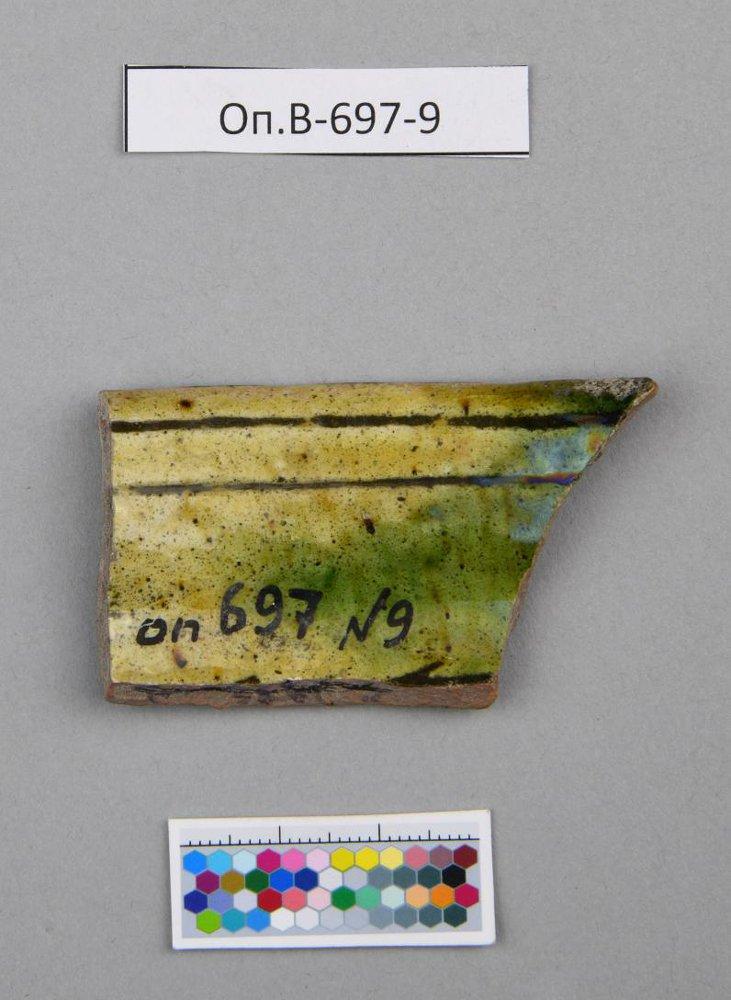 Оп.В-697-9
оп 697 №9